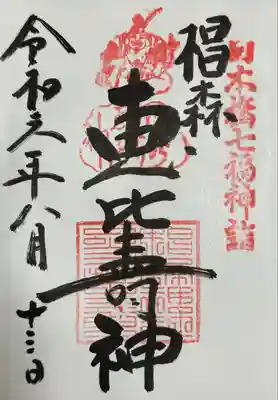 日本橋七福神詣
椙森
惠比壽神
令和元年八月
十三日